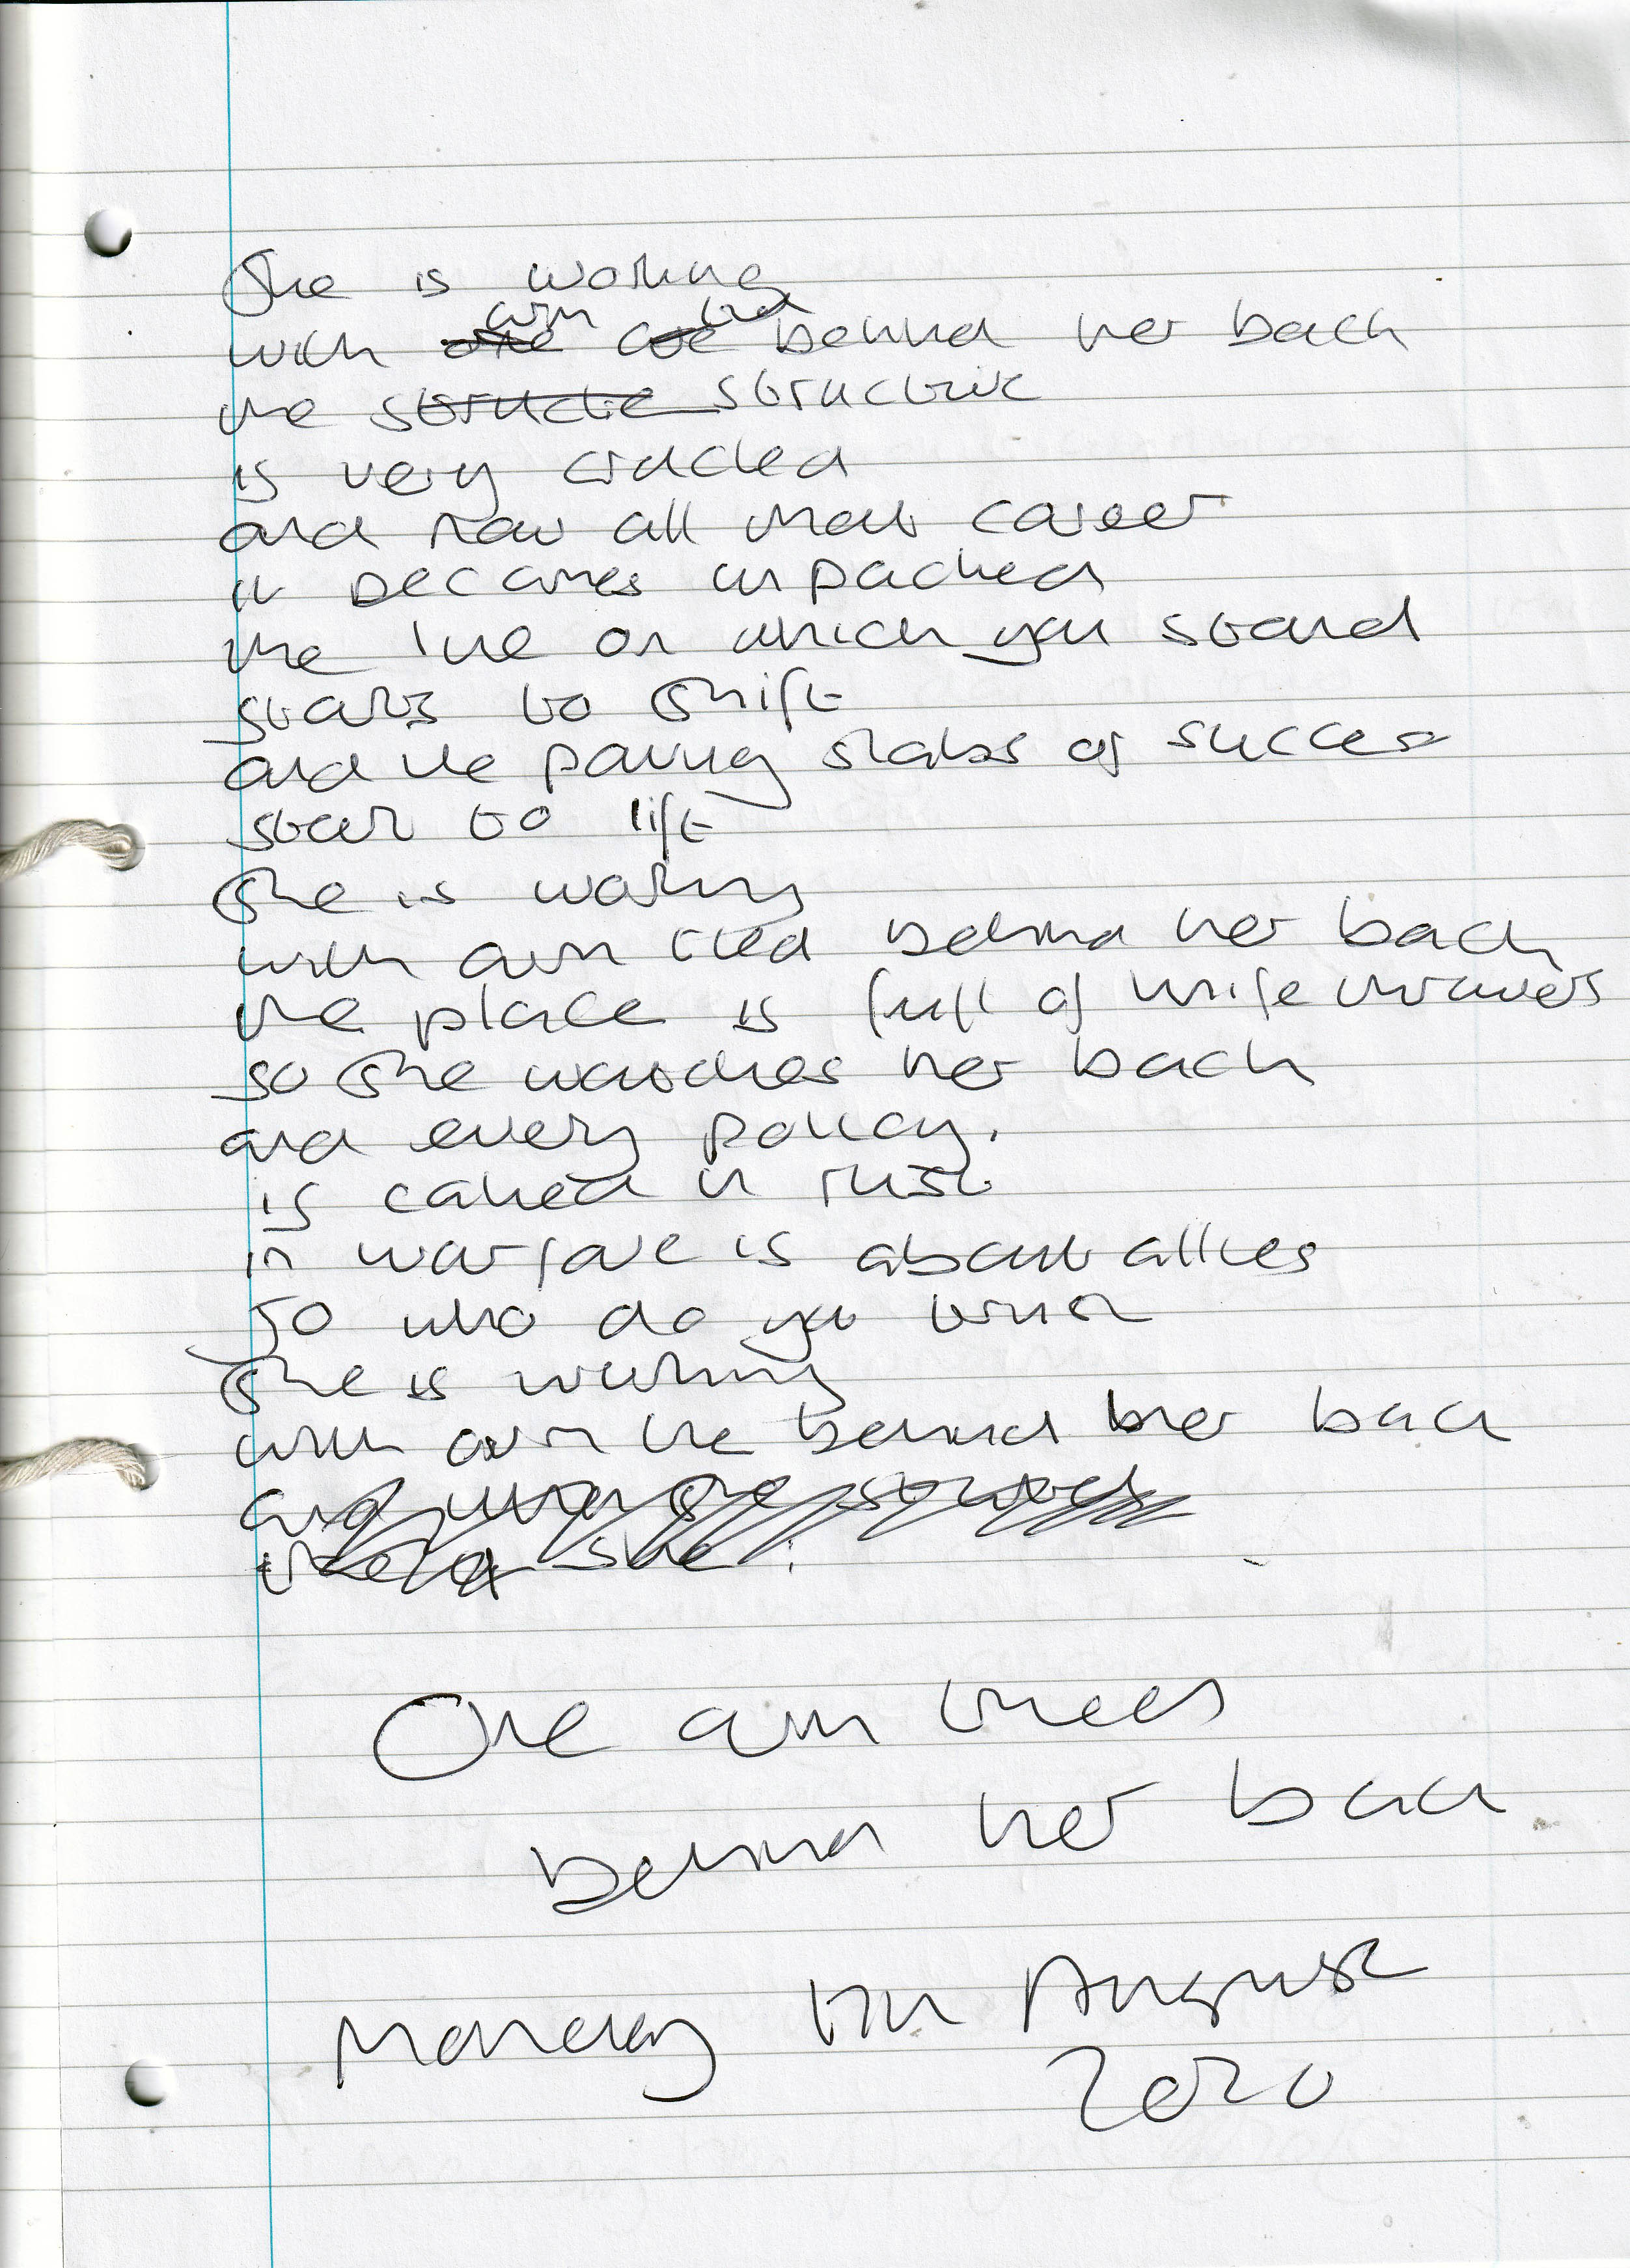 She is working
with arm tied behind her back
the structure
is very cracked
and now all that career
it becomes unpacked
the line on which you stand
starts to shift
and the paving slabs of success
start to lift
She is working
with arm tied behind her back
the place is full of knife throwers
so she watches her back
and every policy.
is caked in rust
in warfare is about allies
so who do you trust
She is working
with arm tie behind her back
One arm
behind her back
Monday 17th August
2020